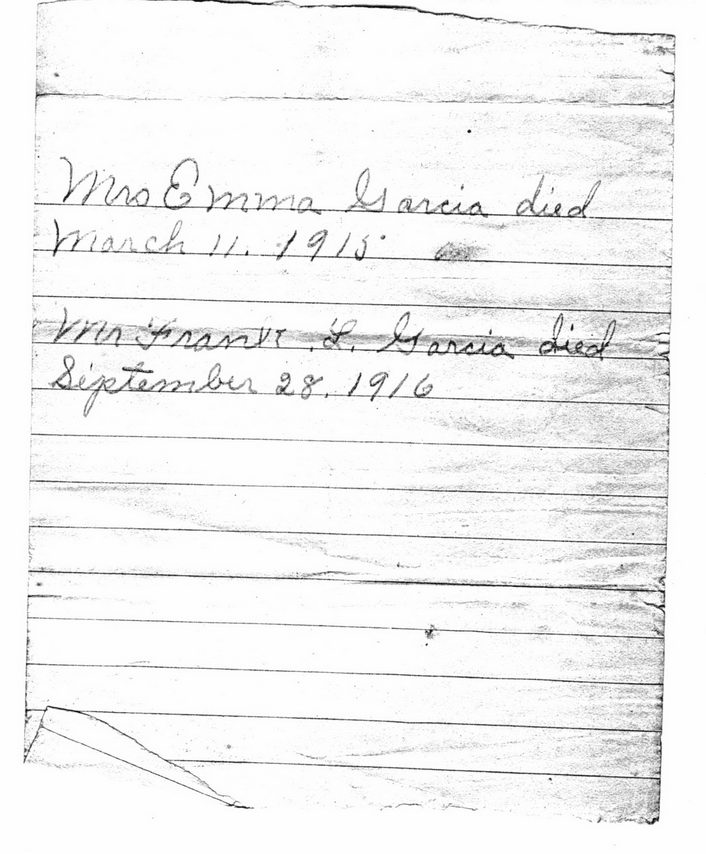 Mrs Emma Garcia died
March 11. 1915
Mr Frank L. Garcia died
September 28, 1916